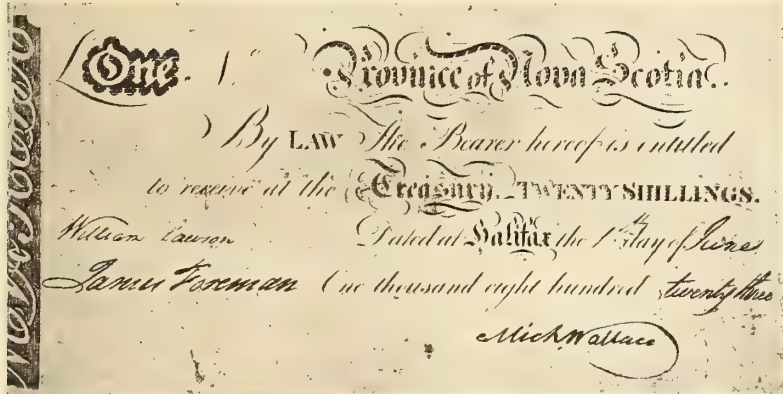 One. 1. Province of Nova Scotia.
By LAW The Bearer hereof is entitled
to receive at the Treasury. TWENTY SHILLINGS.
William Lawson Dated at Halifax the 1st day of June
James Foreman One thousand eight hundred twenty three
Mich Wallace